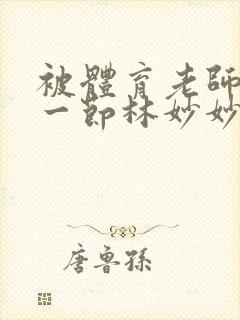 被體育老師
一節林妙妙
唐魯孫